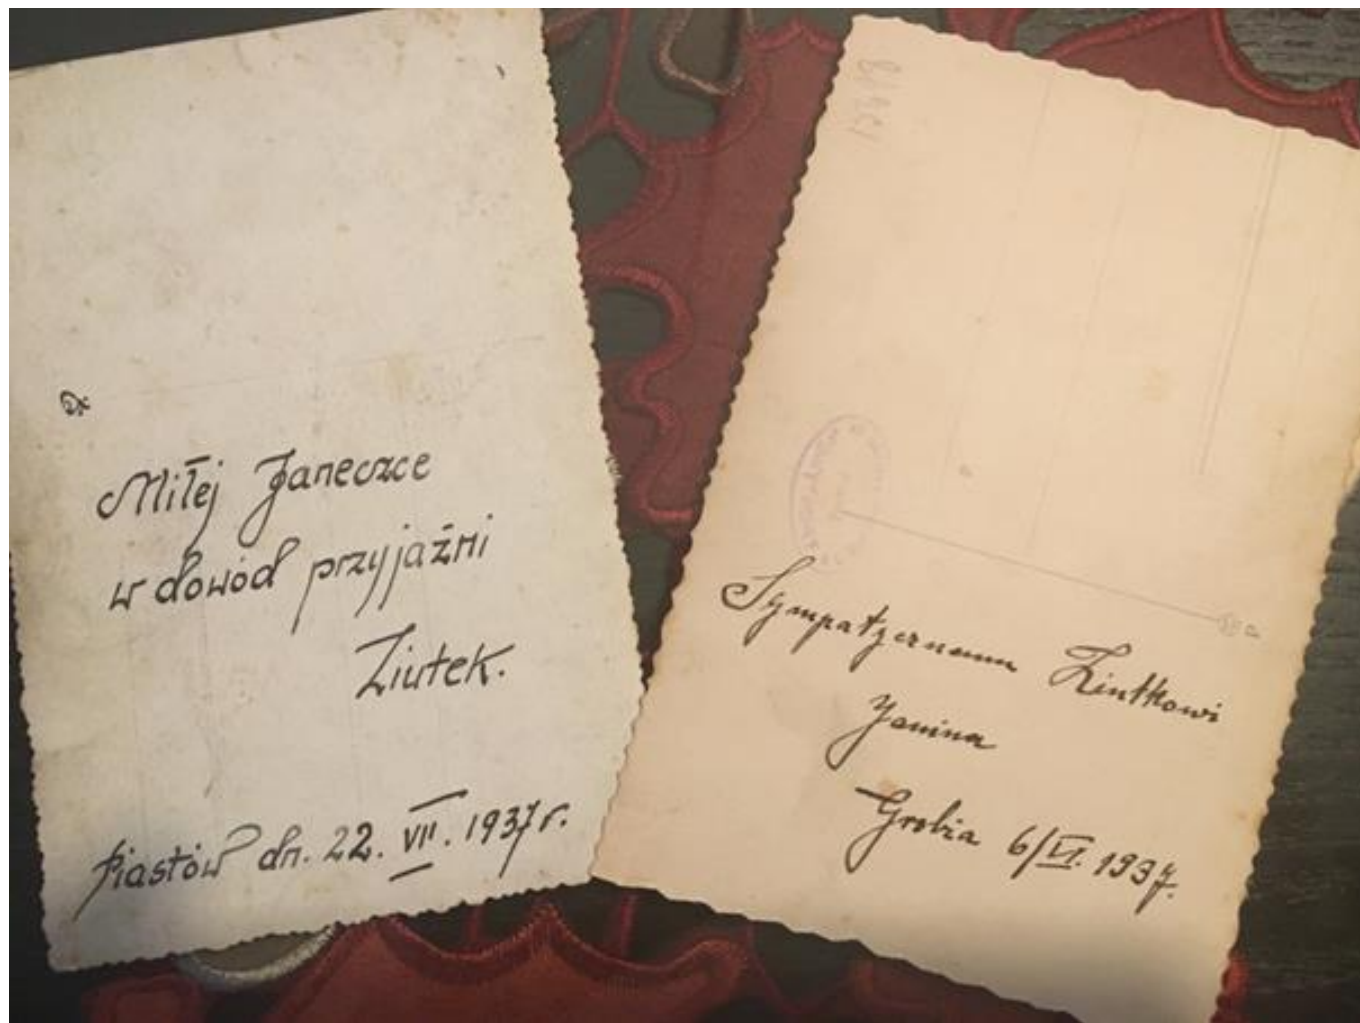 Miłej Janeczce
w dowód przyjaźni
Ziutek.
Piastów dn. 22. VII. 1937 r.
Sympatycznemu Ziutkowi
Janina
Grobia 6/VI. 1937.